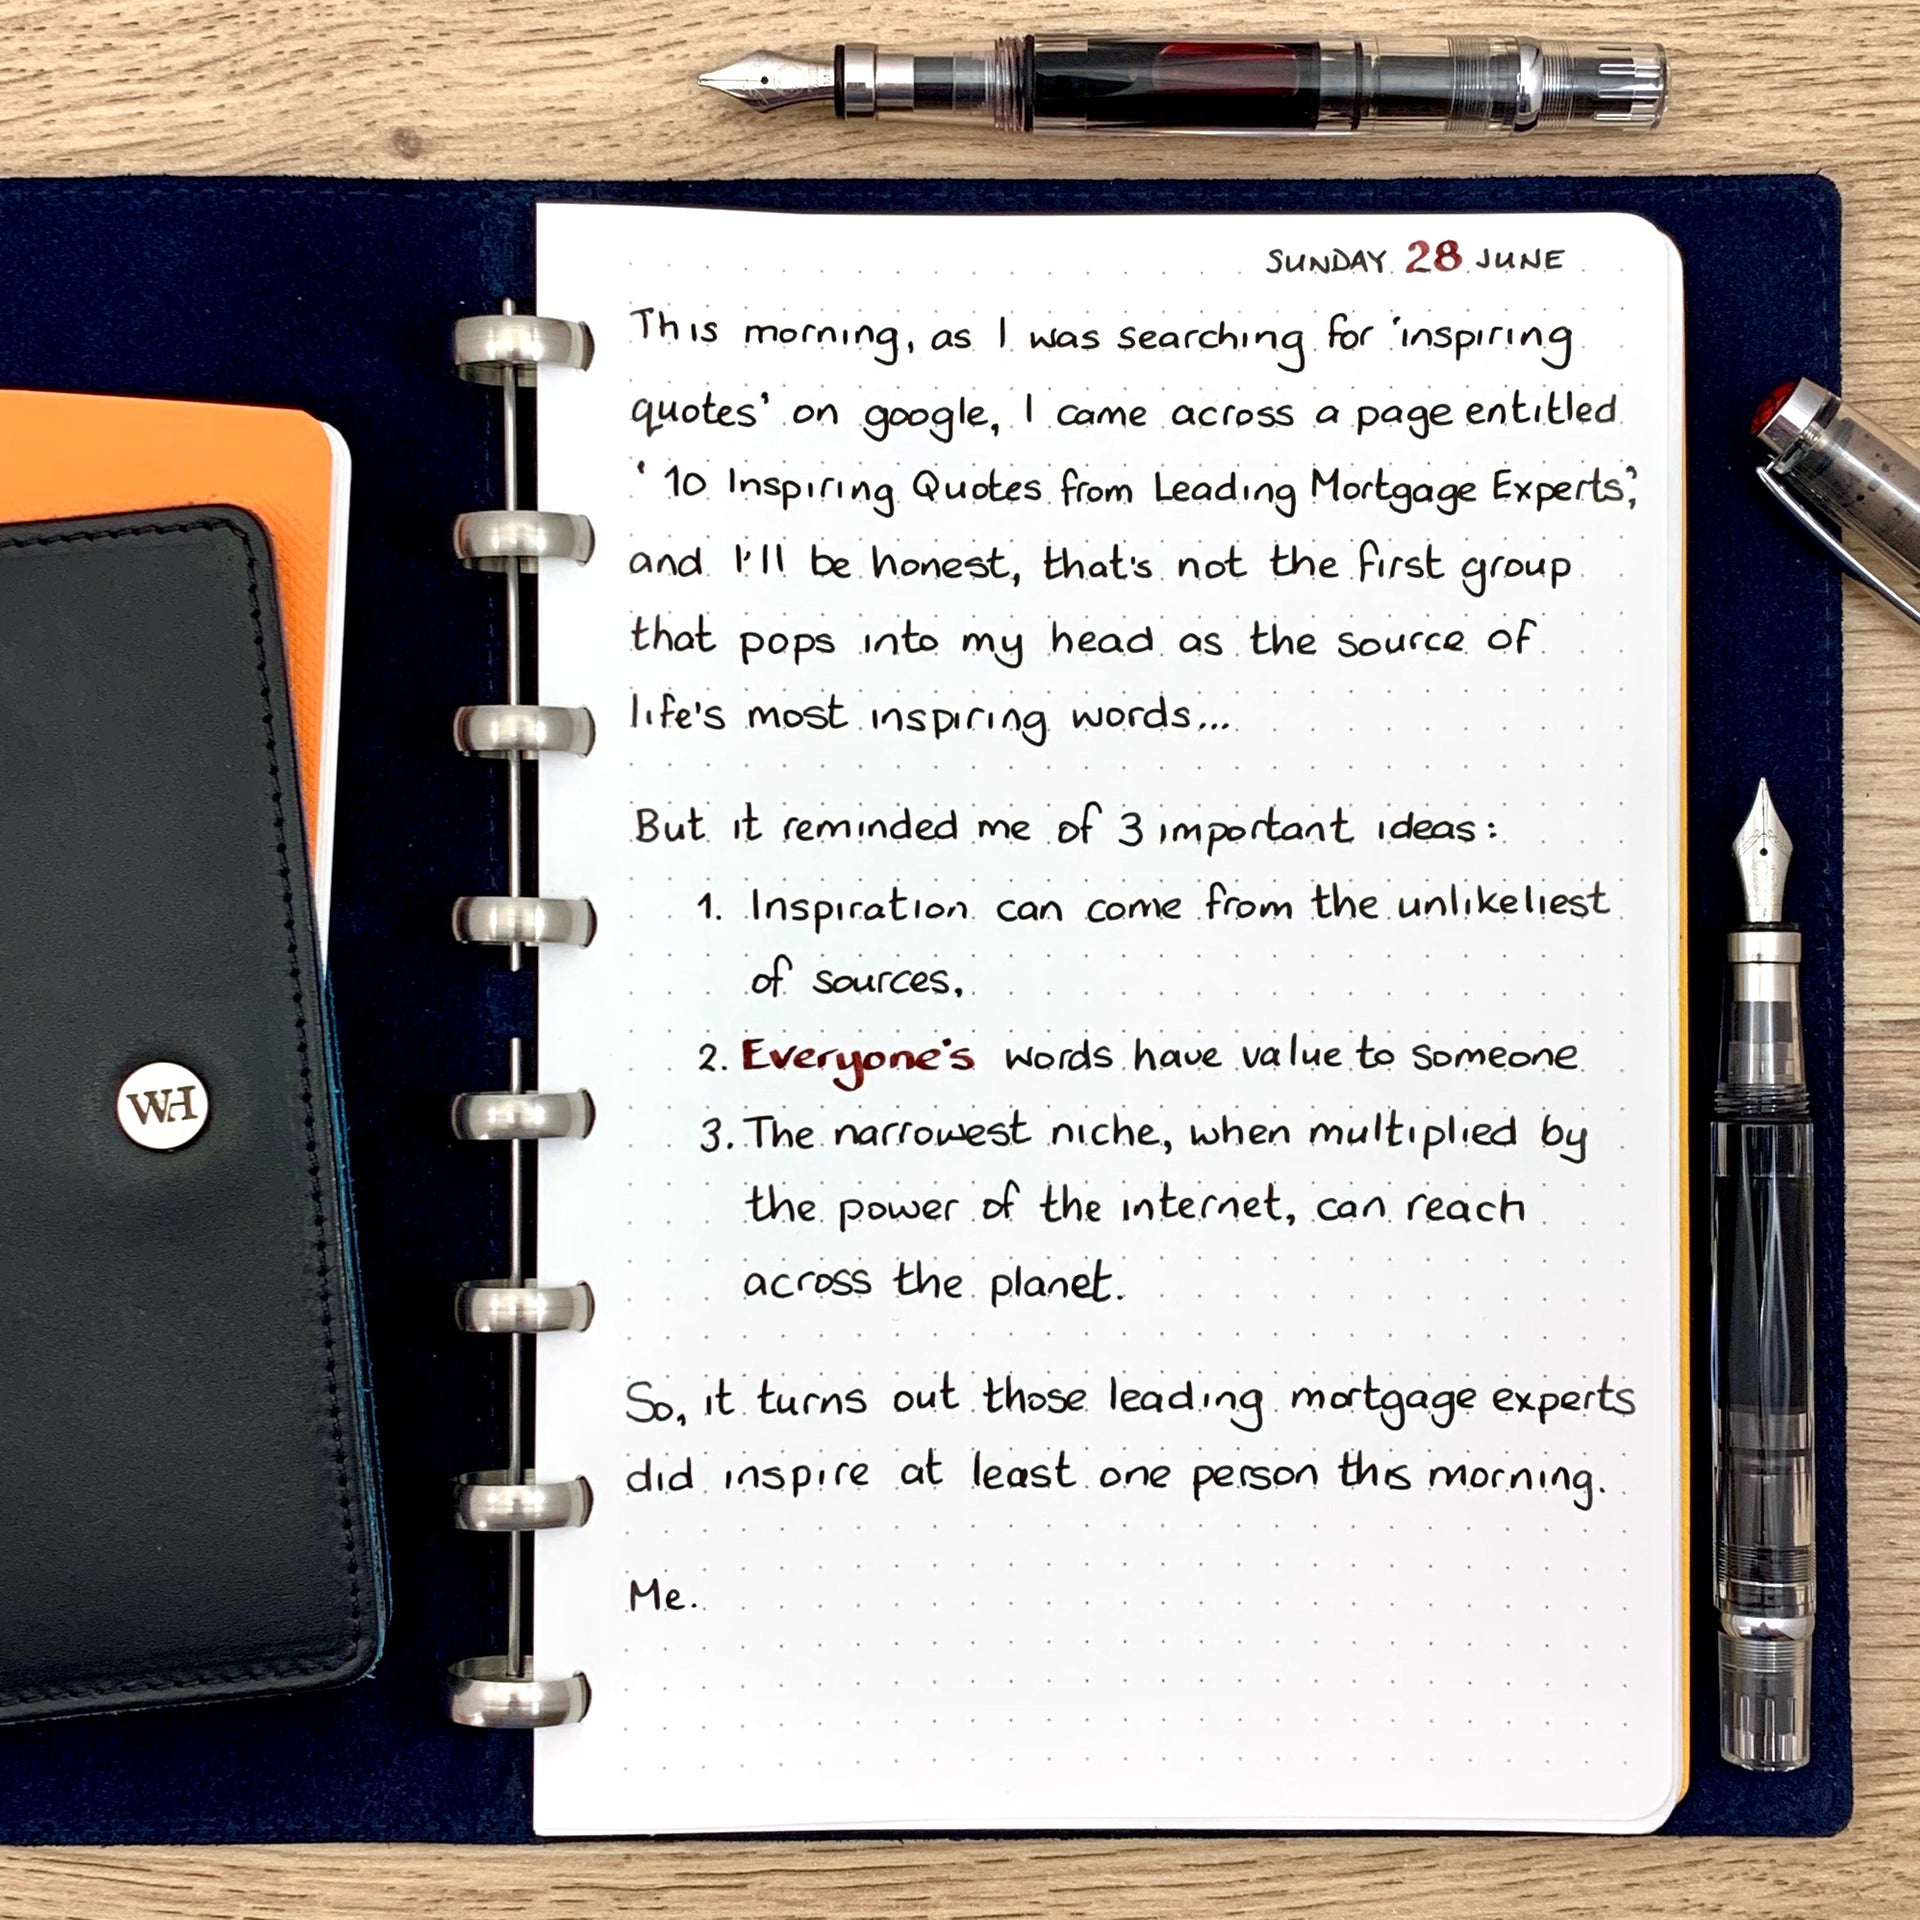 SUNDAY 28 JUNE
This morning, as I was searching for 'inspiring
quotes' on google, I came across a page entitled
'10 Inspiring Quotes from Leading Mortgage Experts',
and I'll be honest, that's not the first group
that pops into my head as the source of
life's most inspiring words...
But it reminded me of 3 important ideas:
1. Inspiration can come from the unlikeliest
of sources,
2. Everyone's words have value to someone
3. The narrowest niche, when multiplied by
the power of the internet, can reach
across the planet.
So, it turns out those leading mortgage experts
did inspire at least one person this morning.
Me.
WH